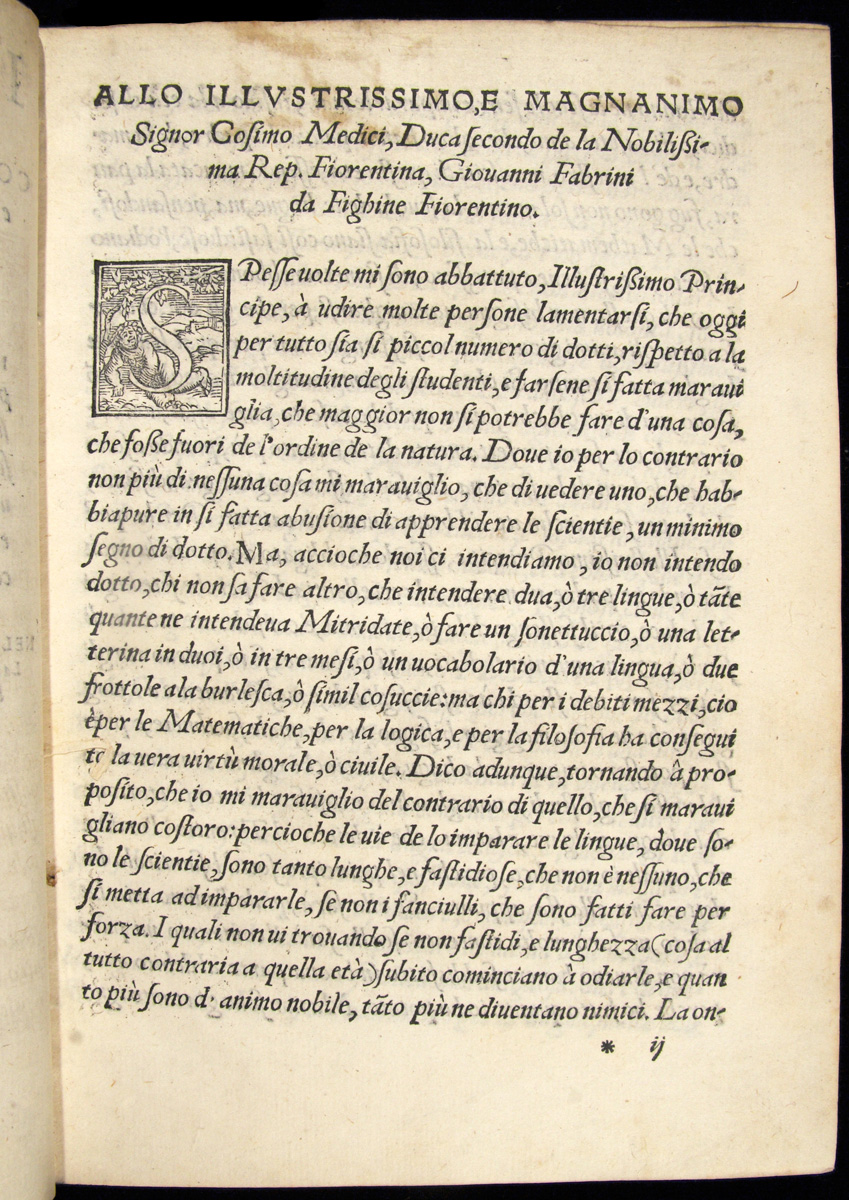 ALLO ILLVSTRISSIMO, E MAGNANIMO
Signor Coſimo Medici, Duca ſecondo de la Nobilißi-
ma Rep. Fiorentina, Giouanni Fabrini
da Fighine Fiorentino.
SPeſſe uolte mi ſono abbattuto, Illuſtrißimo Prin-
cipe, à udire molte perſone lamentarſi, che oggi
per tutto ſia ſi piccol numero di dotti, riſpetto a la
moltitudine degli ſtudenti, e farſene ſi fatta maraui
glia, che maggior non ſi potrebbe fare d'una coſa,
che foße fuori de l'ordine de la natura. Doue io per lo contrario
non più di neſſuna coſa mi marauiglio, che di uedere uno, che hab-
bia pure in ſi fatta abuſione di apprendere le ſcientie, un minimo
ſegno di dotto. Ma, accioche noi ci intendiamo, io non intendo
dotto, chi non ſa fare altro, che intendere dua, ò tre lingue, ò tāte
quante ne intendeua Mitridate, ò fare un ſonettuccio, ò una let-
terina in duoi, ò in tre meſi, ò un uocabolario d'una lingua, ò due
frottole a la burleſca, ò ſimil coſuccie: ma chi per i debiti mezzi, cio
è per le Matematiche, per la logica, e per la filoſofia ha conſegui
to la uera uirtù morale, ò ciuile. Dico adunque, tornando â pro-
poſito, che io mi marauiglio del contrario di quello, che ſi maraui
gliano coſtoro: percioche le uie de lo imparare le lingue, doue ſo-
no le ſcientie, ſono tanto lunghe, e faſtidioſe, che non è neſſuno, che
ſi metta ad impararle, ſe non i fanciulli, che ſono fatti fare per
forza. I quali non ui trouando ſe non faſtidi, e lunghezza (coſa al
tutto contraria a quella età) ſubito cominciano à odiarle, e quan
to più ſono d' animo nobile, tāto più ne diuentano nimici. La on-
* ij